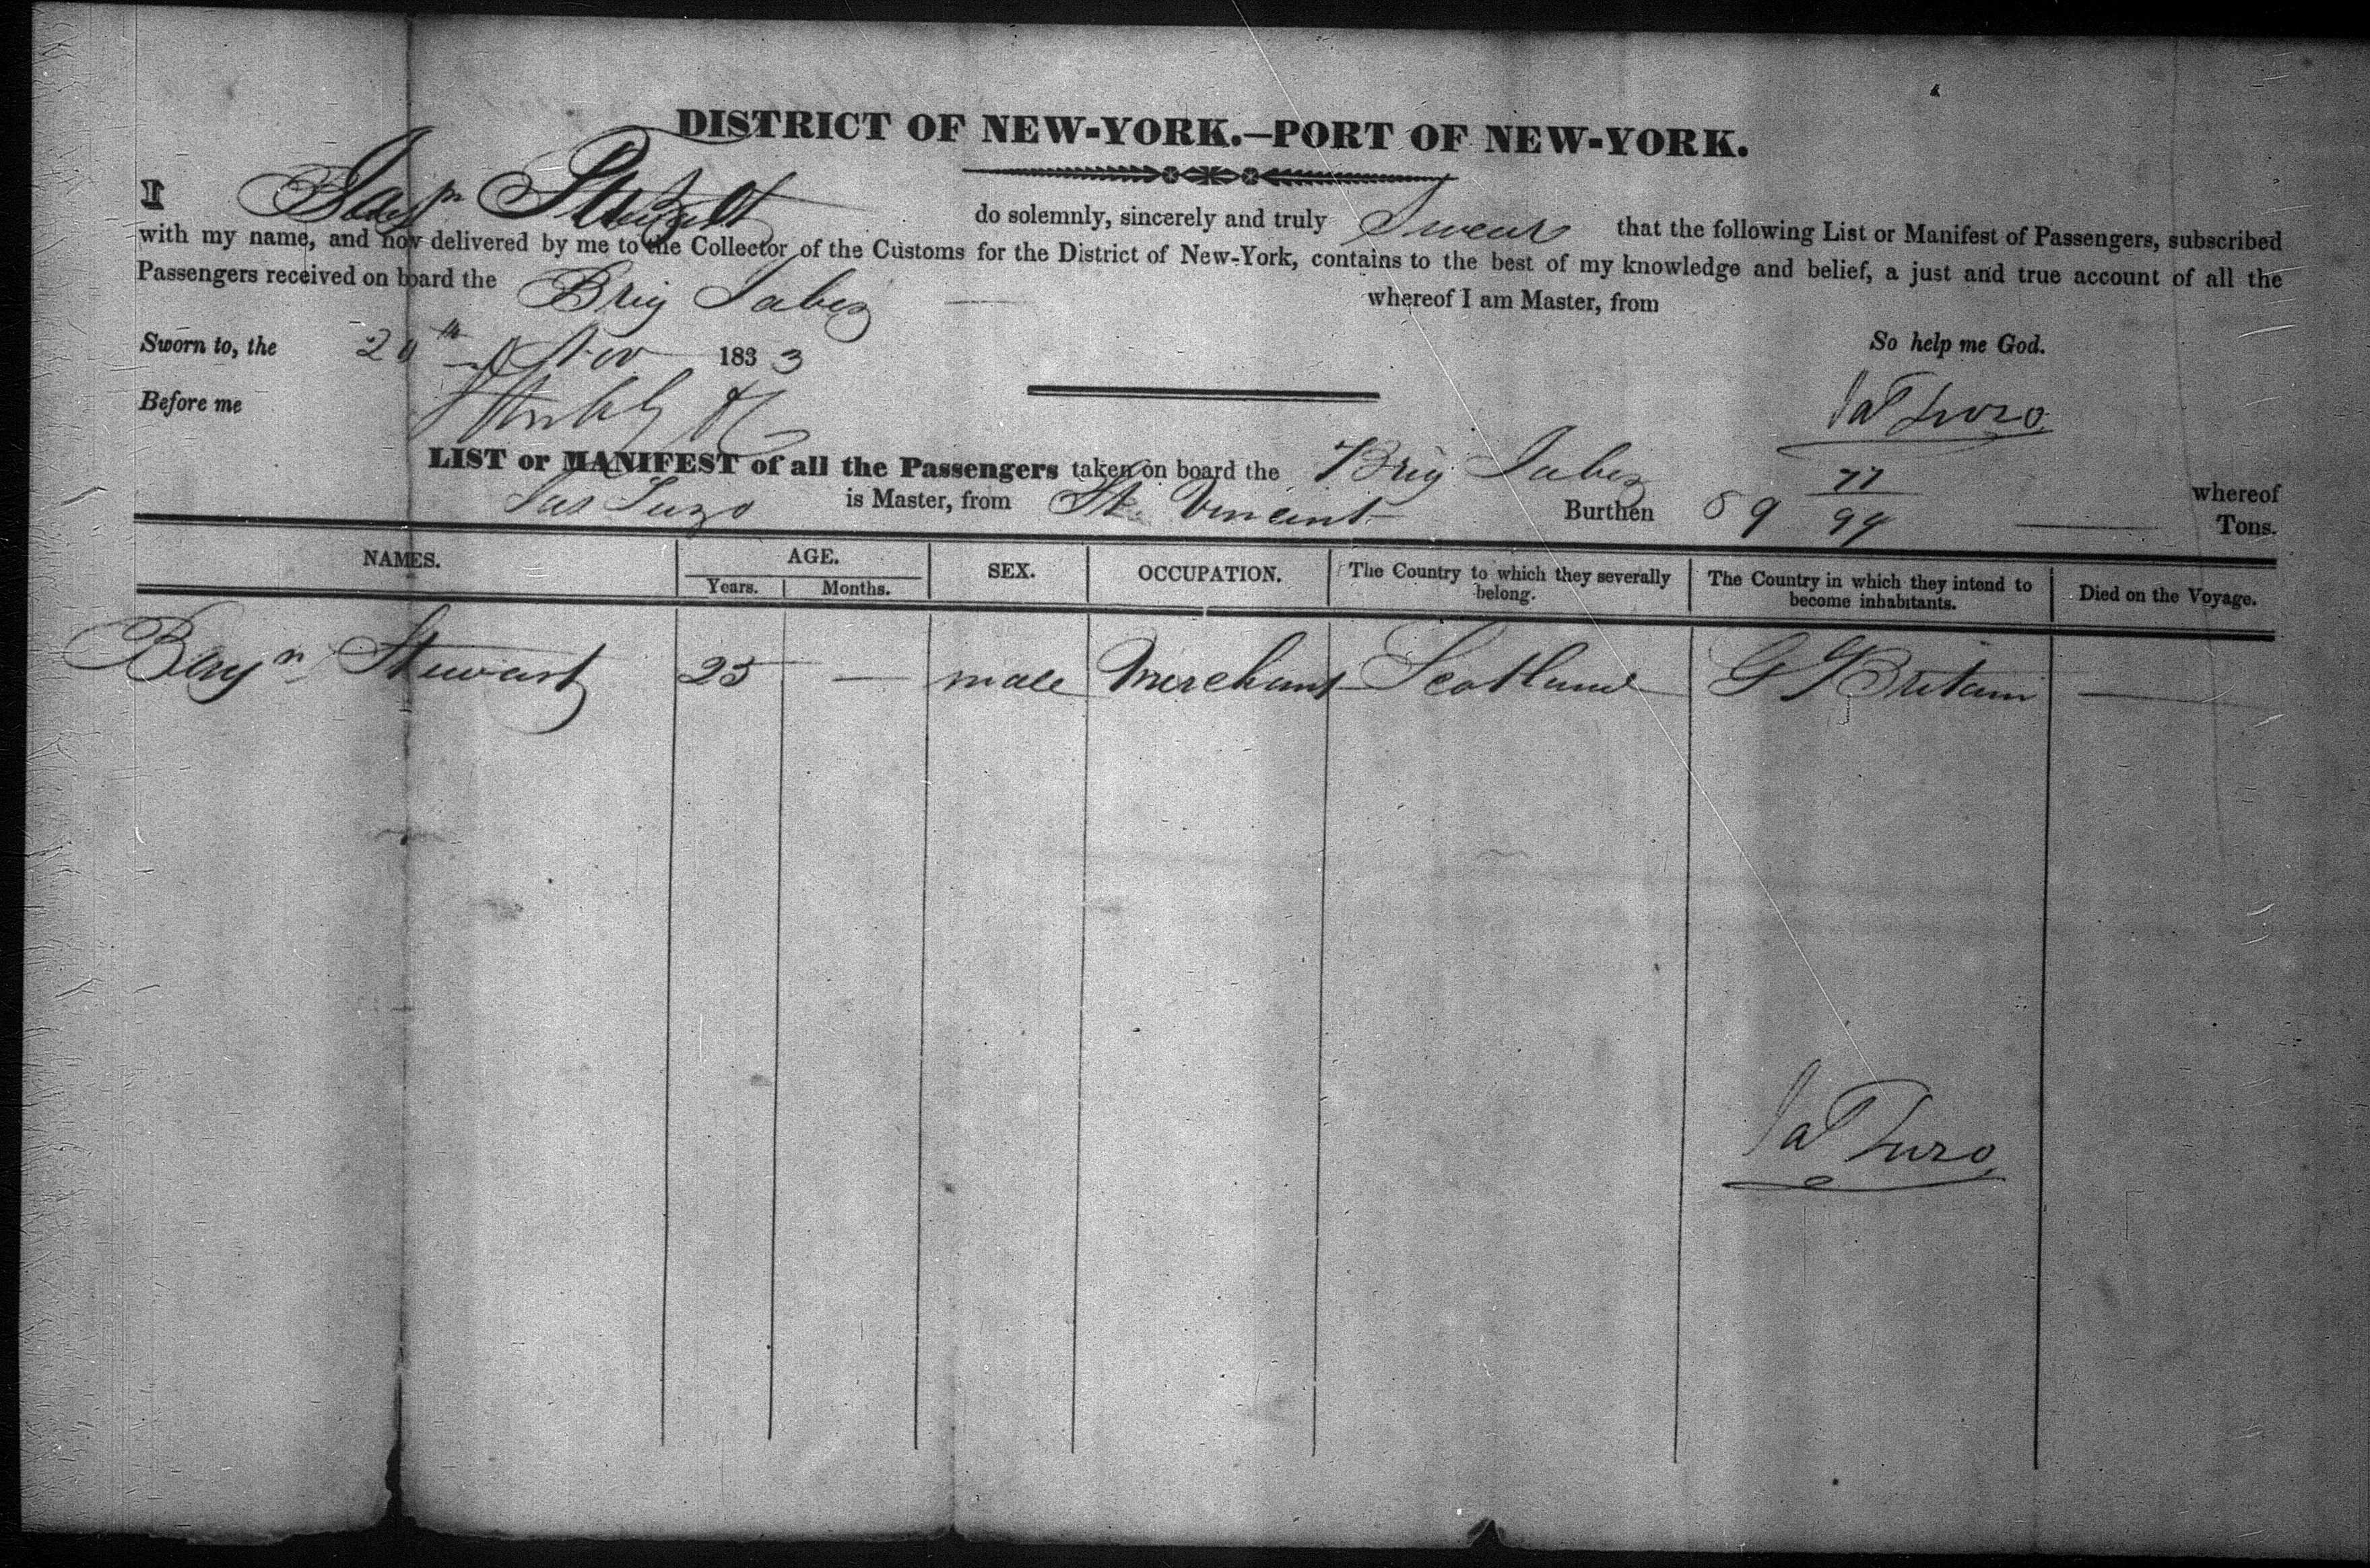 DISTRICT OF NEW-YORK.—PORT OF NEW-YORK.
I do solemnly, sincerely and truly Swear that the following List or Manifest of Passengers, subscribed
with my name, and now delivered by me to the Collector of the Customs for the District of New-York, contains to the best of my knowledge and belief, a just and true account of all the
Passengers received on board the Brig Jabez whereof I am Master, from
Sworn to, the 20th of Nov 1833 So help me God.
Before me
LIST or MANIFEST of all the Passengers taken on board the Brig Jabez whereof
Jas Luzo is Master, from St. Vincent Burthen 89 77/94 Tons.
NAMES. AGE. SEX. OCCUPATION. The Country to which they severally belong. The Country in which they intend to become inhabitants. Died on the Voyage.
Years. Months.
Bayn Stewart 25 — male Merchant Scotland G Britain —
Jas Luzo